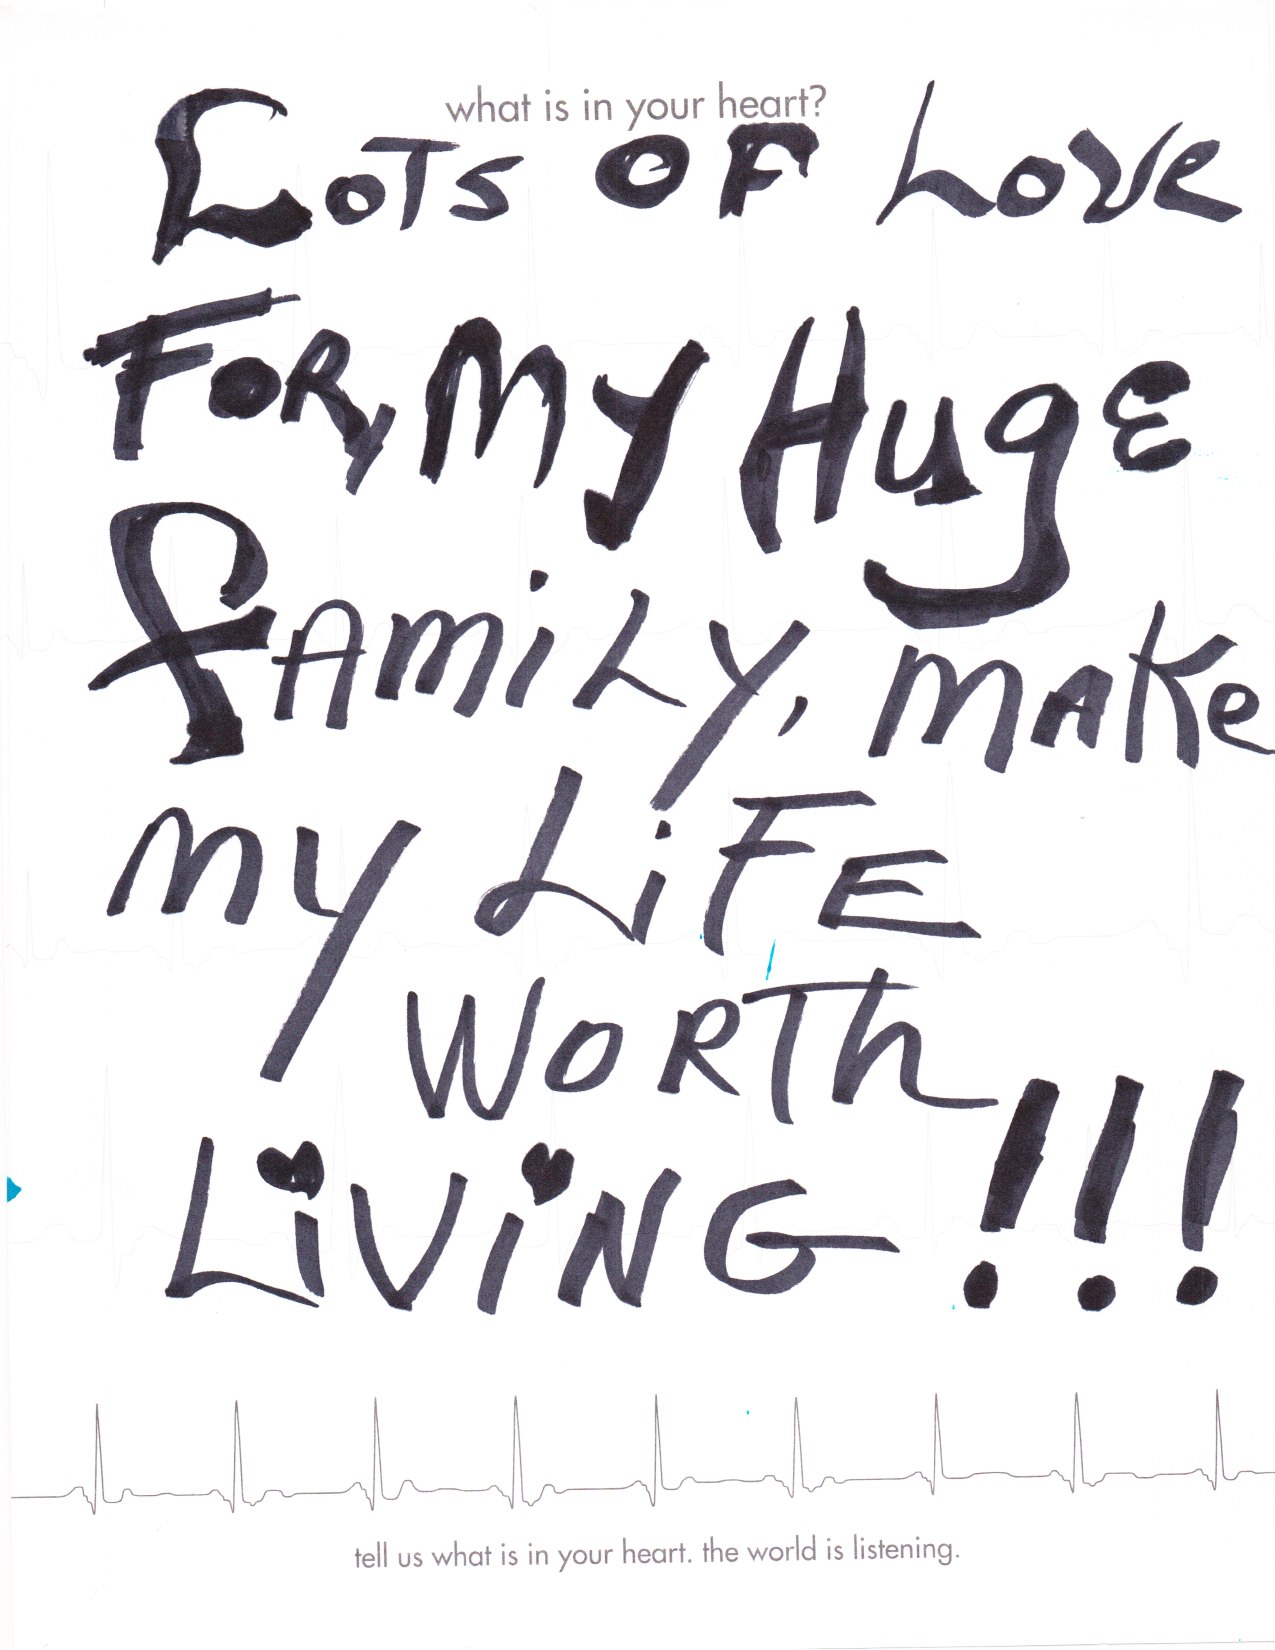 what is in your heart?
LOTS OF LOVE
FOR, MY HUGE
FAMiLY, MAKe
MY LiFE
WORTh
LiViNG!!!
tell us what is in your heart. the world is listening.